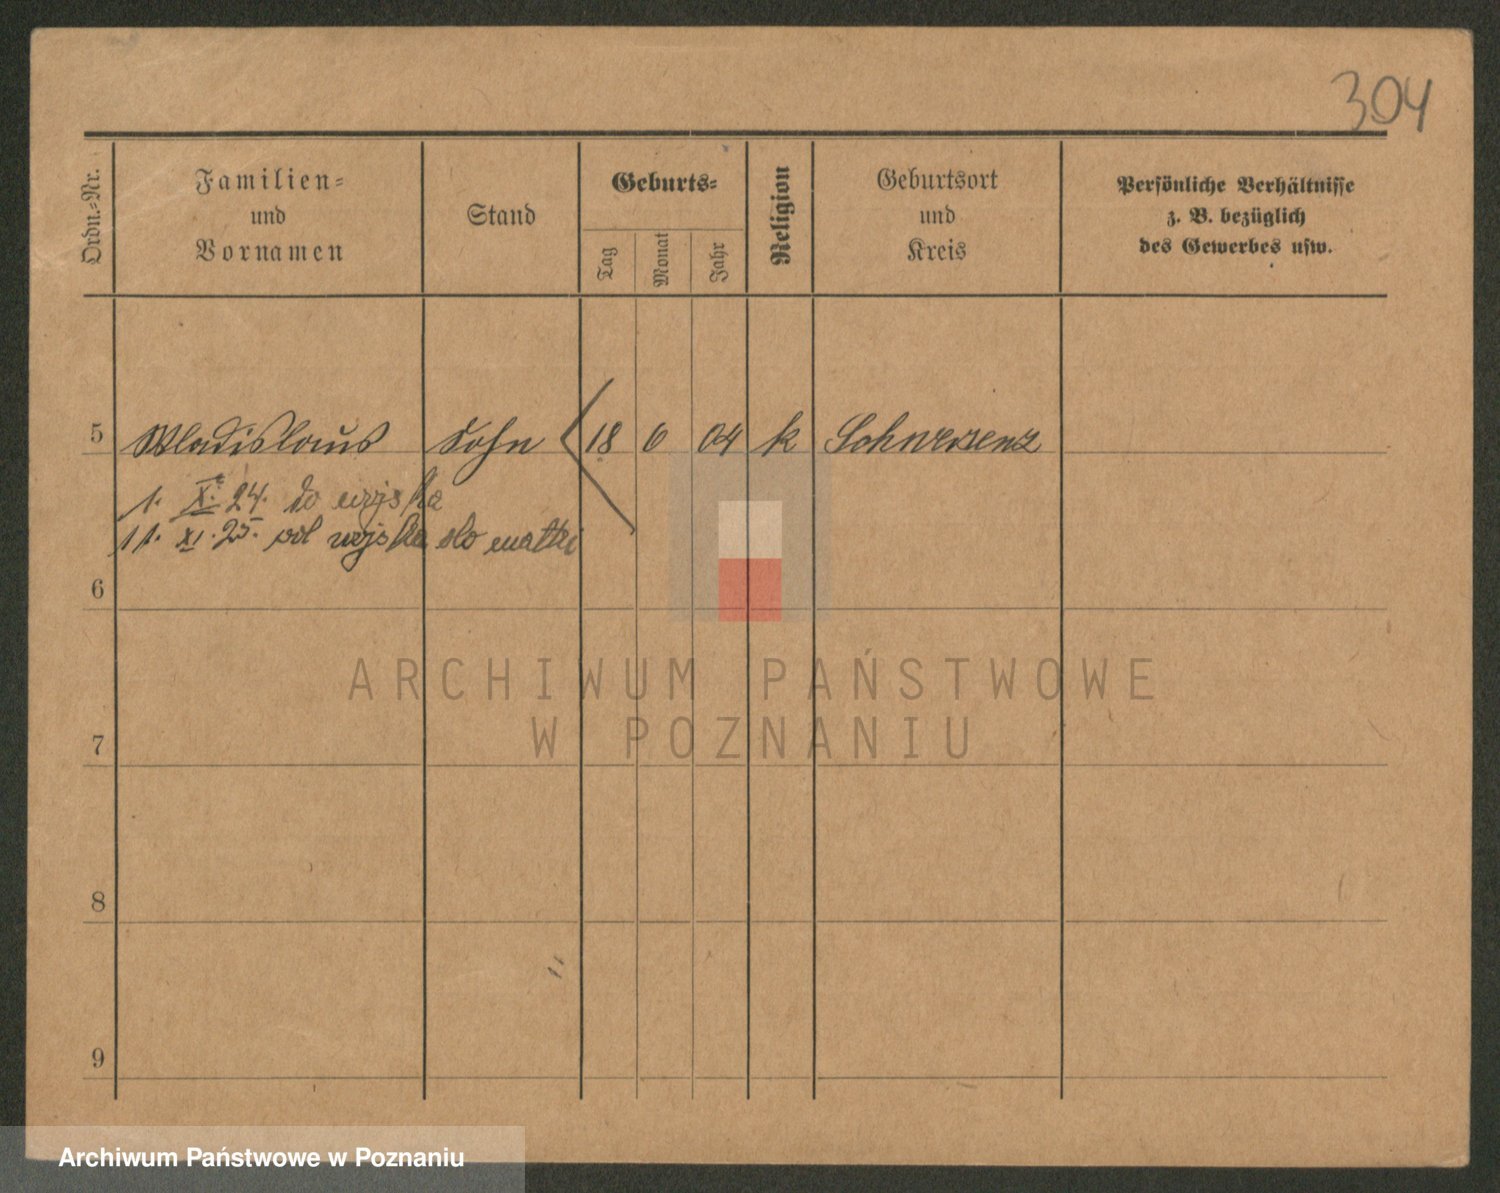 304
Ordn.-Nr.
Familien-
und
Vornamen
Stand
Geburts-
Tag
Monat
Jahr
Religion
Geburtsort
und
Kreis
Persönliche Verhältnisse
z. B. bezüglich
des Gewerbes usw.
5 Wladislaus Sohn 18 6 04 k Schwersenz
1. X. 24. do wojska
11. XI. 25. od wojska do matki
6
ARCHIWUM PAŃSTWOWE
W POZNANIU
7
8
9
Archiwum Państwowe w Poznaniu